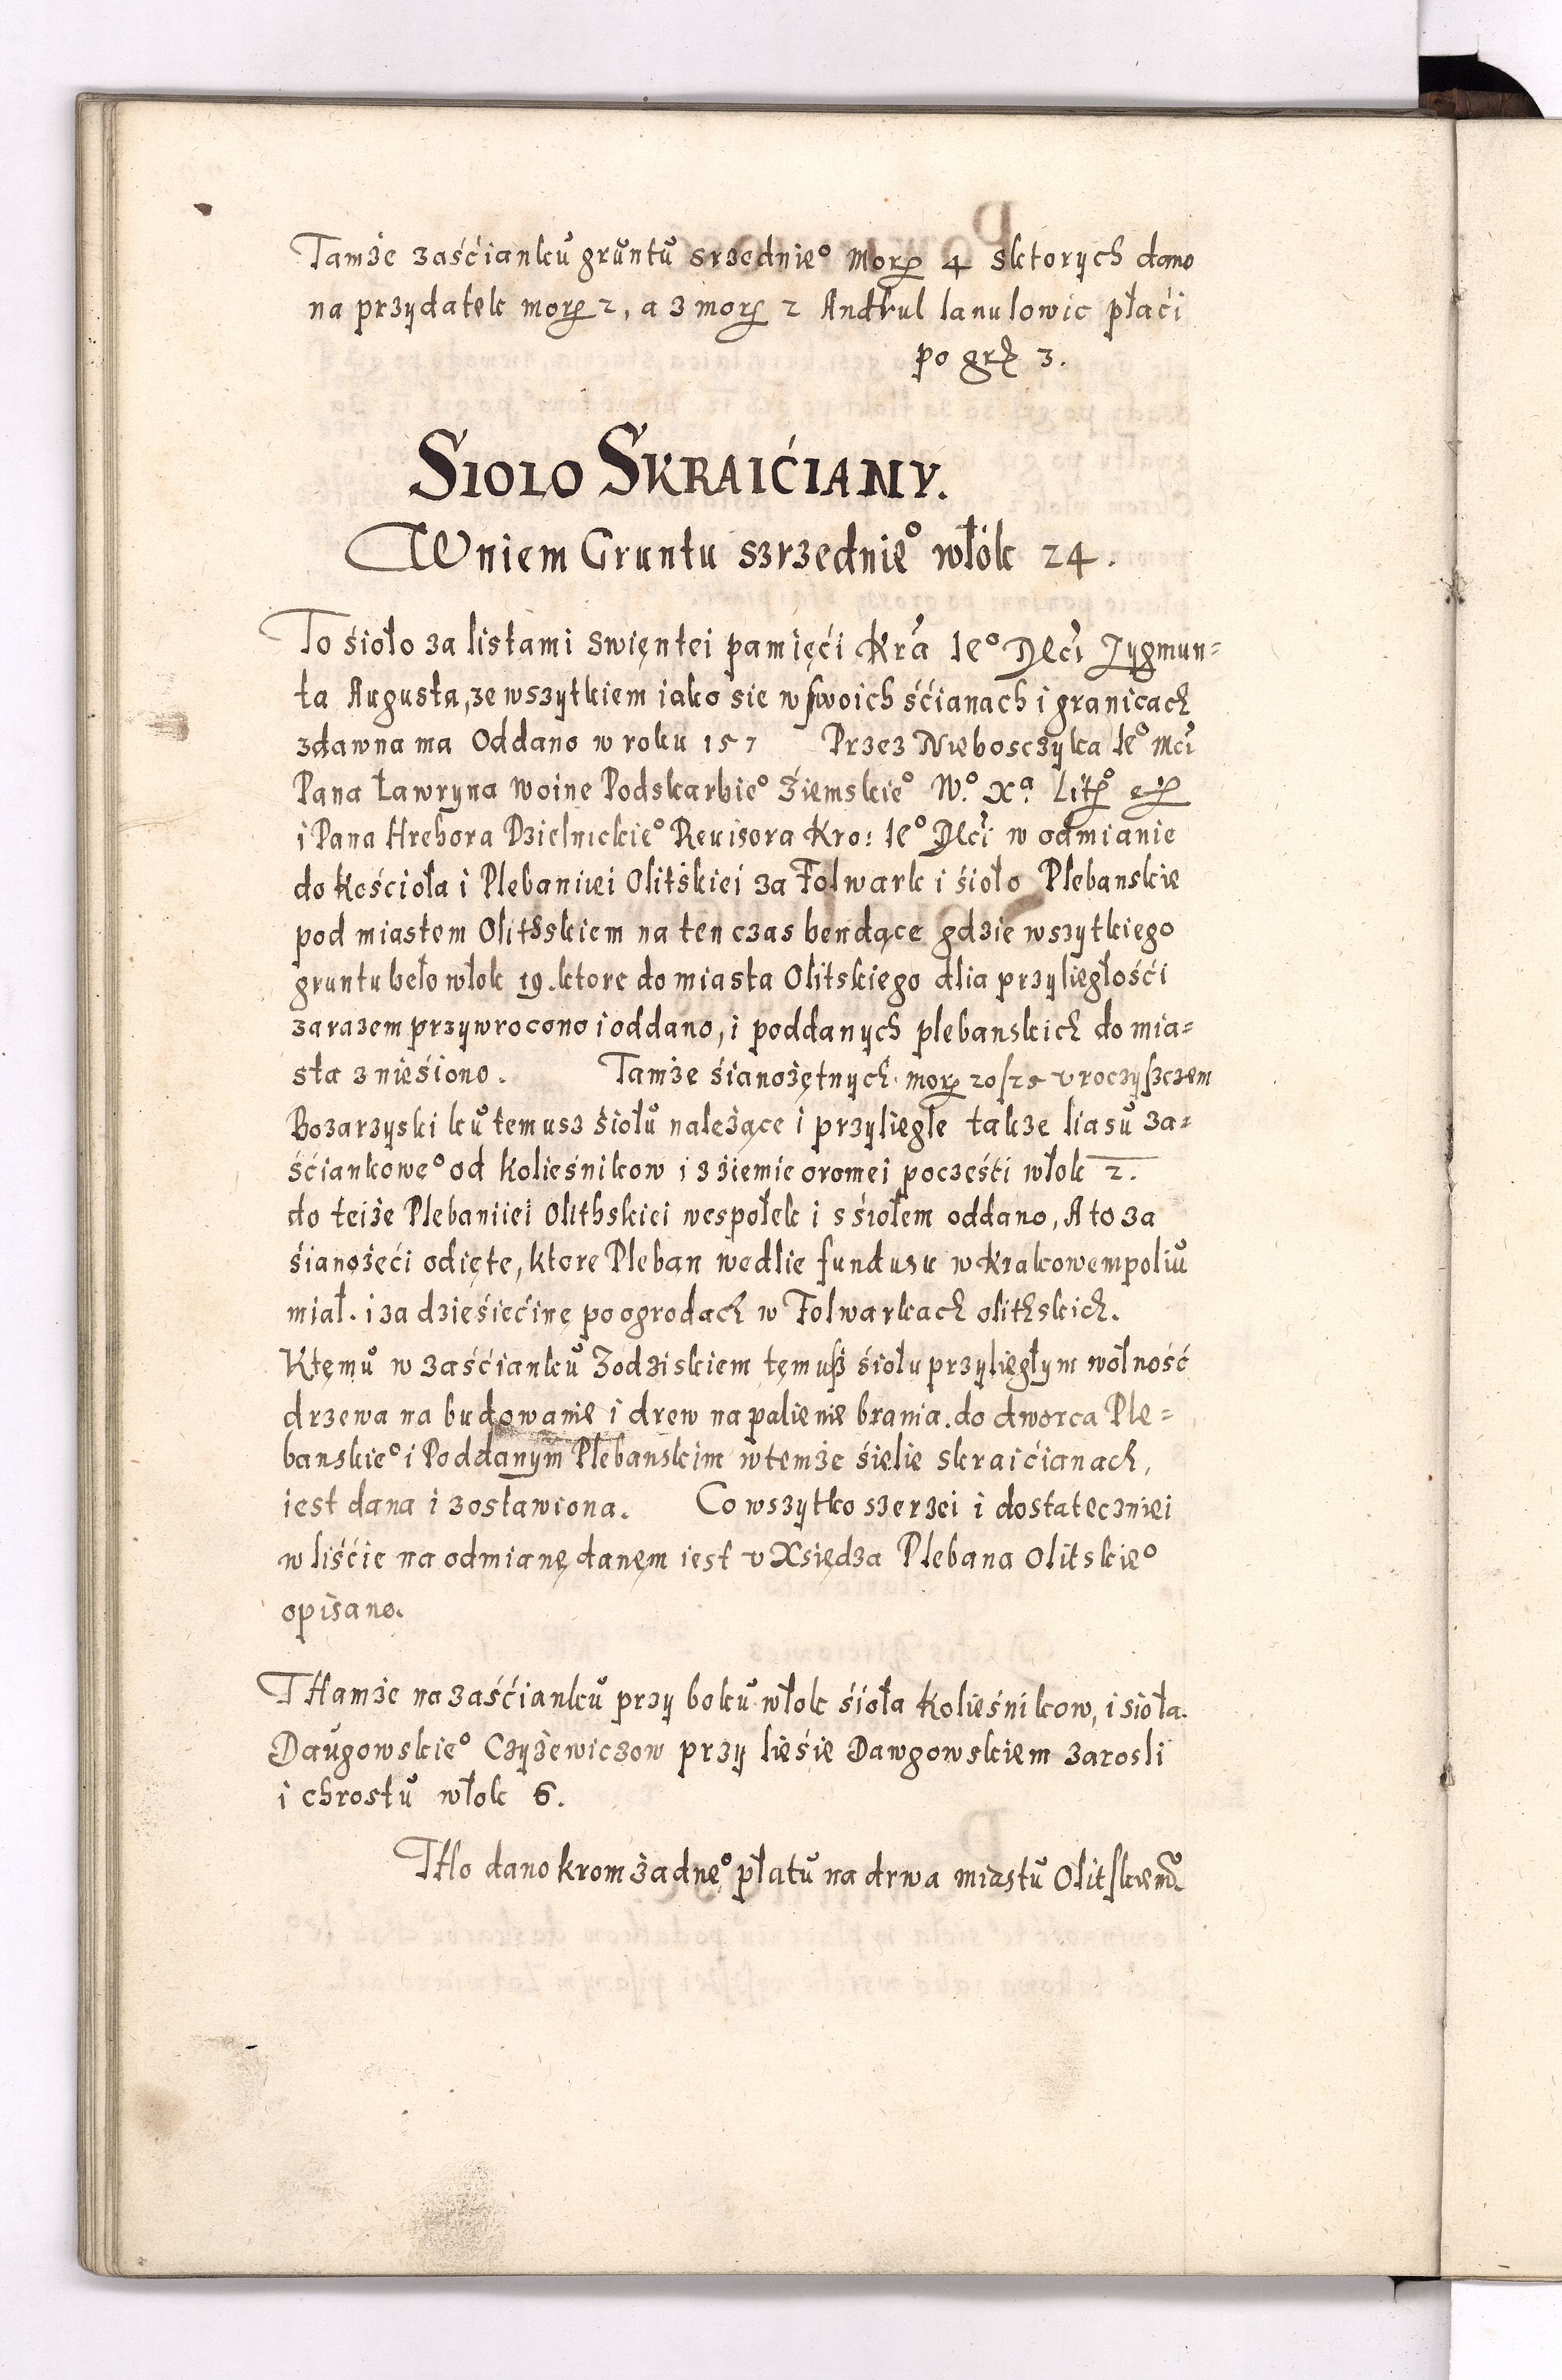 Tamże zaśćianku gruntu srzednie° Morg 4 sktorych dano
na przydatek morg 2, a z morg 2 Andrul Ianulowic płaći
po grß 3.
SIOLO SKRAIĆIANY.
W niem Gruntu szrzednie° włók 24.
To śioło za listami Swiętei pamięći Kra Ie° Mći Zygmun=
ta Augusta, ze wszytkiem iako sie w swoich śćianach i granicach
zdawna ma Oddano w roku 157 Przez Nieboszczyka Ie° Mći
Pana Ławryna Woine Podskarbie° Ziemskie° W.° Xa. Lit°
i Pana Hrehora Dzielnickie° Reuisora Kro: Ie° Mći w odmianie
do Kościoła i Plebaniiei Olitskiei za Folwark i śioło Plebanskie
pod miastem Olithskiem na ten czas bendące gdzie wszytkiego
gruntu beło włok 19. ktore do miasta Olitskiego dlia przyliegłośći
zarazem przywrocono i oddano, i poddanych plebanskich do mia=
sta znieśiono. Tamże śianożętnych morg 20 s 25 v roczyszczem
Bozarzyski ku temusz śiołu należące i przyliegłe takze liasu za=
śćiankowe° od Kolieśnikow i z źiemie oromei pocześti włok 2.
do teiże Plebaniiei Olithskiei wespołek i s śiołem oddano, A to za
śianożęći odięte, ktore Pleban wedlie fundusu w Krakowempoliu
miał. i za dzieśiećine po ogrodach w Folwarkach olithskich.
Ktęmu w zaśćianku Zodziskiem tęmuß śiołu przyliegłym wolność
drzewa na budowanie i drew na palienie brania. do dworca Ple=
banskie° i Poddanym Plebanskim w temże śielie skraićianach,
iest dana i zostawiona. Co wszytko szerzei i dostateczniei
w liśćie na odmianę danęm iest v Xsiędza Plebana Olitskie°
opisano.
THamże na zaśćianku przy boku włok śioła Kolieśnikow, i sioła
Daugowskie° Czyżewiczow przy lieśie Dawgowskiem zarosli
i chrostu włok 6.
THo dano krom żadne° płatu na drwa miastu Olitskiemu.